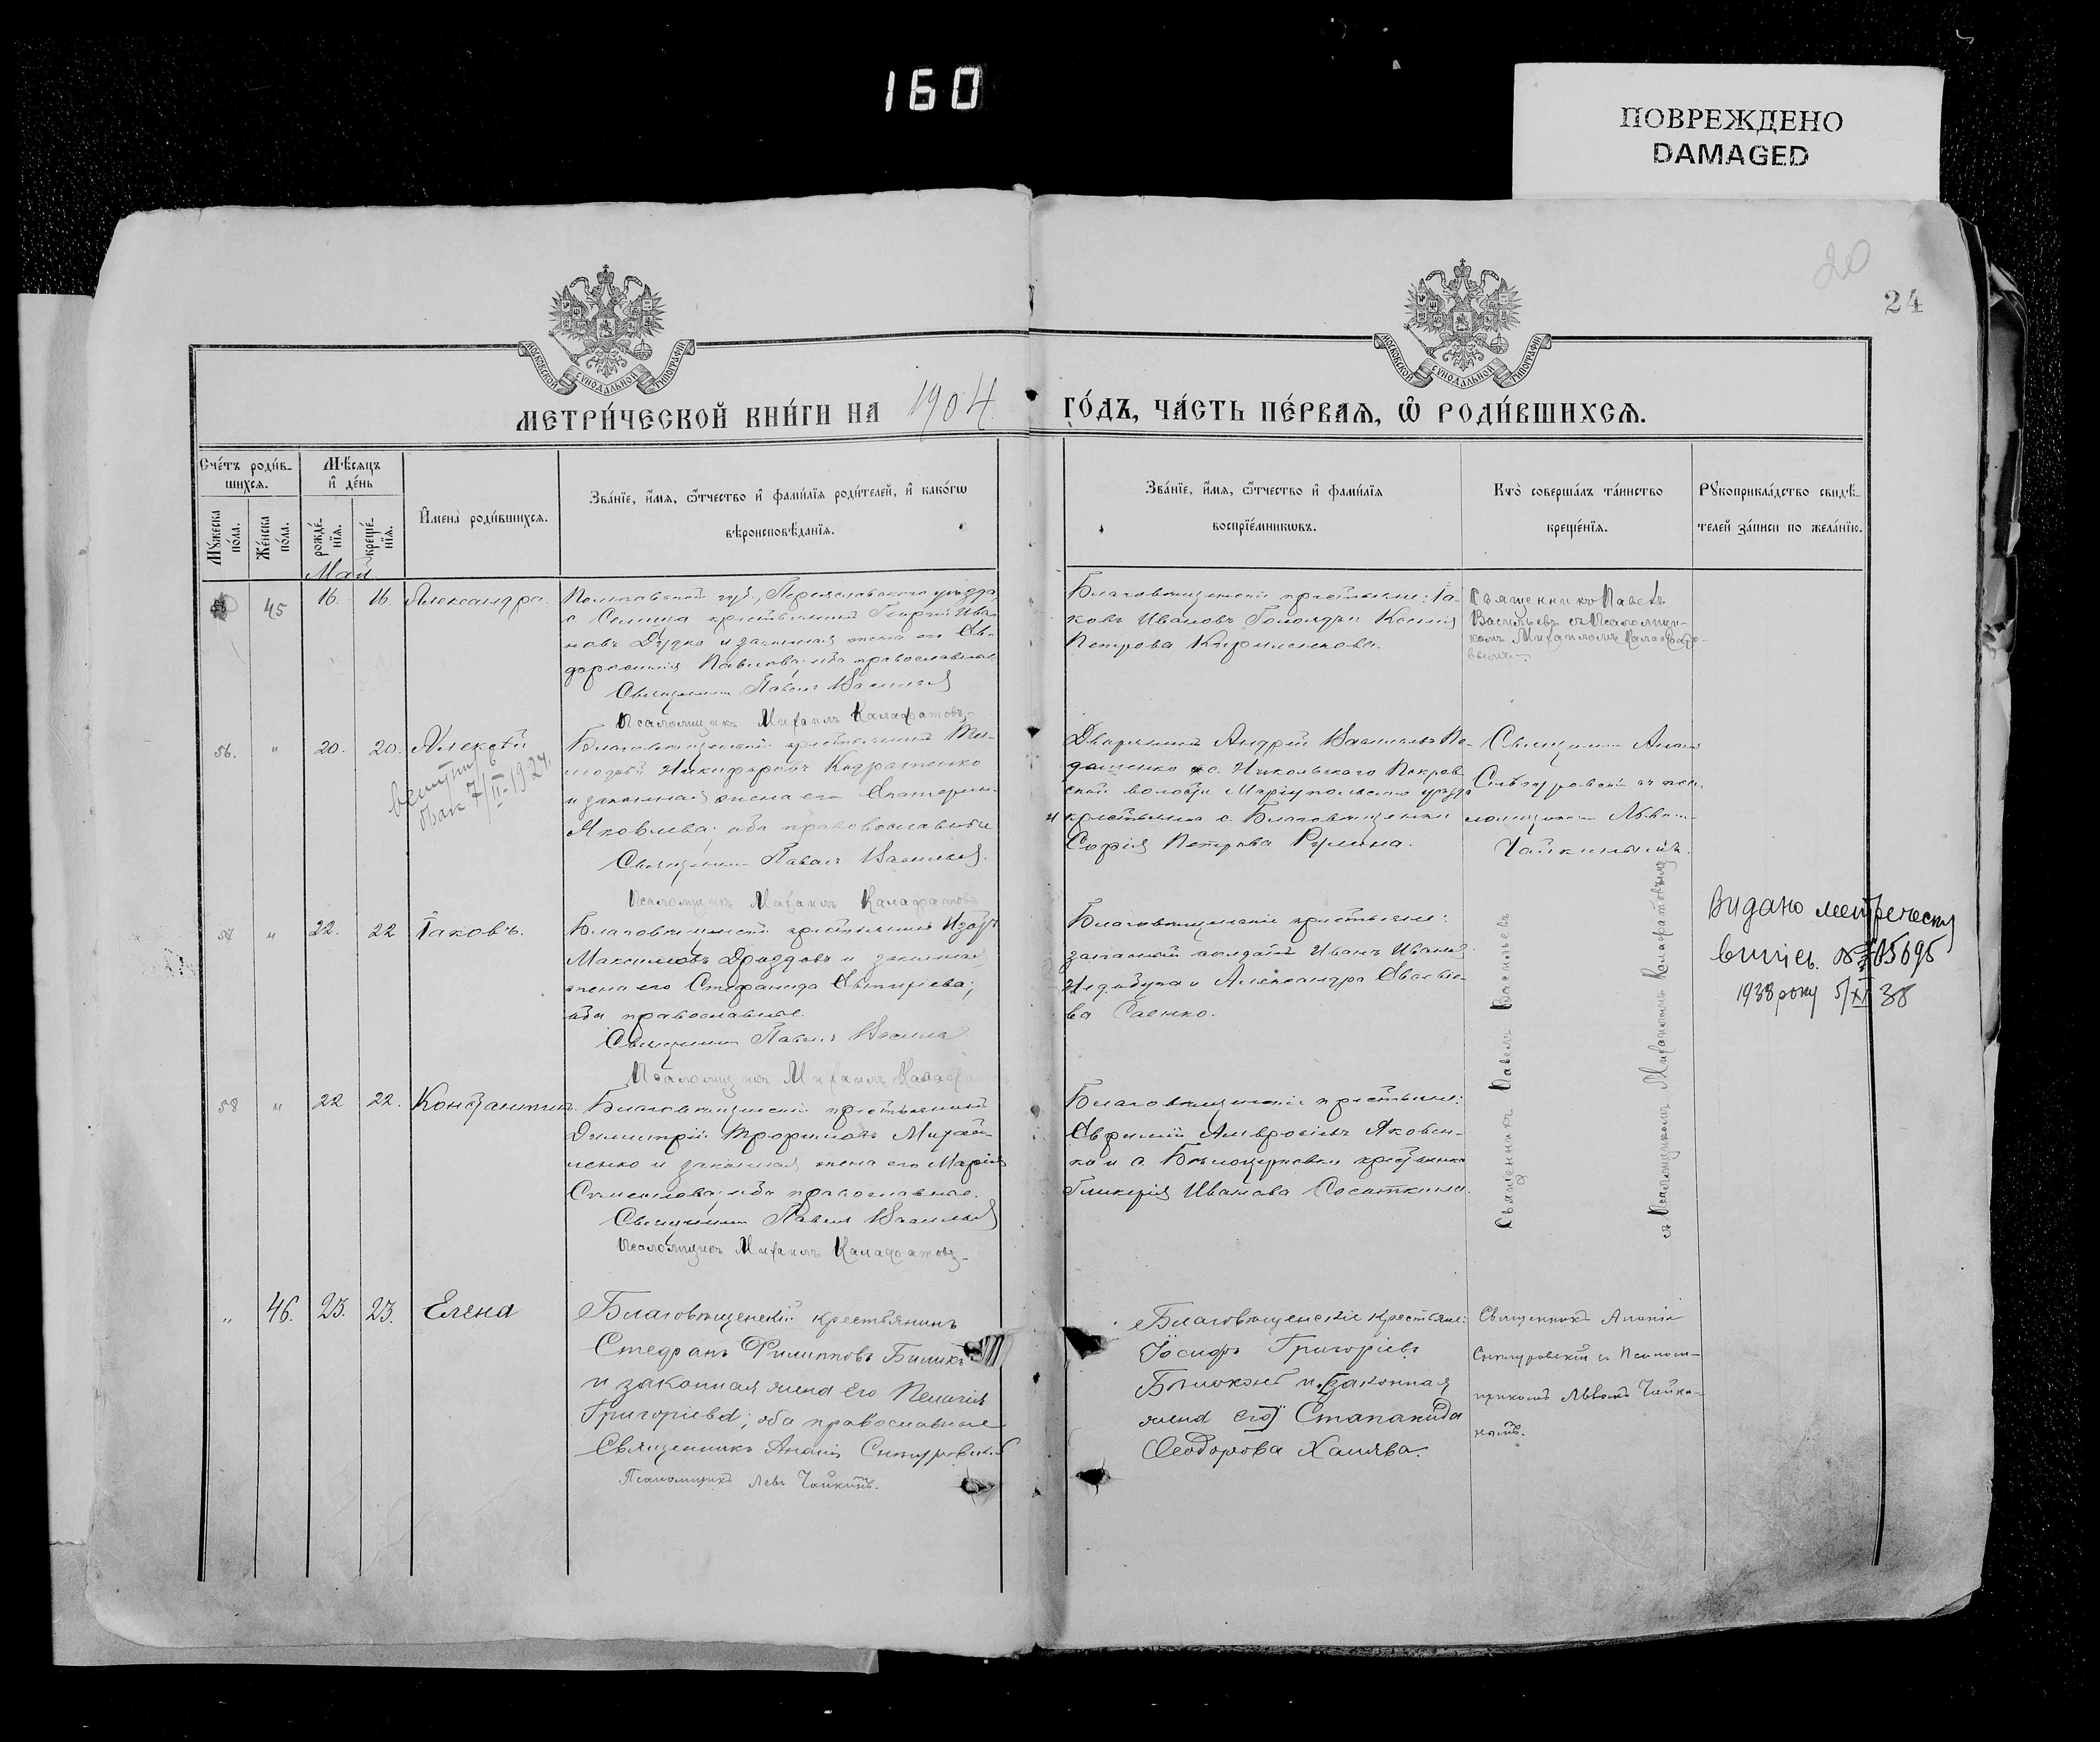 160
ПОВРЕЖДЕНО
DAMAGED
20
24
МОСКОВСКОЙ СѴНОДАЛЬНОЙ ТИПОГРАФІИ
МОСКОВСКОЙ СѴНОДАЛЬНОЙ ТИПОГРАФІИ
МЕТРИ́ЧЕСКОЙ КНИ́ГИ НА 1904 ГО́ДЪ, ЧА́СТЬ ПЕ́РВАѦ, Ѡ҆ РОДИ́ВШИХСѦ.
Сче́тъ роди́в-
шихсѧ.
Мꙋ́жеска по́ла.
Же́нска по́ла.
Мѣ́сѧцъ
и҆ де́нь
рожде́-
нїѧ.
креще́-
нїѧ.
И҆мена̀ роди́вшихсѧ.
Зва́нїе, и҆́мѧ, ѻ҆́тчество и҆ фами́лїѧ роди́телей, и҆ како́гѡ
вѣроисповѣ́данїѧ.
Зва́нїе, и҆́мѧ, ѻ҆́тчество и҆ фами́лїѧ
воспрїе́мникѡвъ.
Кто̀ соверша́лъ та́инство
креще́нїѧ.
Рꙋкоприкла́дство свидѣ́-
телей за́писи по жела́нїю.
Май
45 16. 16. Александра.
Полтавской губ., Переяславского уезда
с. Селища крестьянинъ Георгій Ива-
новъ Дудко и законная жена его Ев-
Павлова; оба православные
Священникъ Павелъ Васильевъ
Псаломщикъ Михаилъ Калафатовъ
Благовѣщенскіе крестьяне: Іа-
ковъ Ивановъ и Ксенія
Петрова Кириленкова.
Священникъ Павелъ
Васильевъ съ Псаломщи-
комъ Михаиломъ Калафато-
вымъ
56. " 20. 20. Алексѣй
7/II-1924.
Благовѣщенскій крестьянинъ Ти-
мофей Никифоровъ Кодратенко
и законная жена его Екатерина
Яковлева; оба православные
Священникъ Павелъ Васильевъ.
Псаломщикъ Михаилъ Калафатовъ
Дворянинъ Андрей Васильевъ
с. Никольскаго Покров
ской волости Маріупольскаго уѣзда
и крестьянка с. Благовѣщенки
Софія Петрова
Священникъ Ананій
Снѣгуровскій съ пса
ломщикомъ Львомъ
Чайкинымъ.
57 " 22. 22 Іаковъ.
Благовѣщенскій крестьянинъ
Максимовъ Дроздовъ и законная
жена его Стефанида Евтихіева;
оба православные.
Священникъ Павелъ Васильевъ
Псаломщикъ Михаилъ Калафатовъ
Благовѣщенскіе крестьяне:
запасный солдатъ Иванъ Ивановъ
и Александра
ва Саенко.
Видано метреческу
виписъ. № 05695
1938 року 5/XI 38
58 " 22 22. Константинъ.
Благовѣщенскій крестьянинъ
Димитрій Трофимовъ Михай-
ленко и законная жена его Марія
Самсонова; оба православные.
Священникъ Павелъ Васильевъ
Псаломщикъ Михаилъ Калафатовъ
Благовѣщенскіе крестьяне:
Евфимій Амвросіевъ Яковен-
ко и с. Бѣлоцерковки крестьянка
Гликерія Иванова Сосаткина.
Священникъ Павелъ Васильевъ
съ Псаломщикомъ Михаиломъ Калафатовымъ
" 46. 23. 23. Елена
Благовѣщенскій крестьянинъ
Стефанъ Филипповъ Биликъ
и законная жена его Пелагія
Григоріева; оба православные
Священникъ Ананій Снѣгуровскій
Псаломщикъ Левъ Чайкинъ.
Благовѣщенскіе крестьяне:
Іосифъ Григоріевъ
Бѣлоконь и [законная
жена его] Стапанида
Ѳеодорова Халява.
Священникъ Ананій
Снѣгуровскій съ Псалом-
щикомъ Львомъ Чайки-
нымъ.